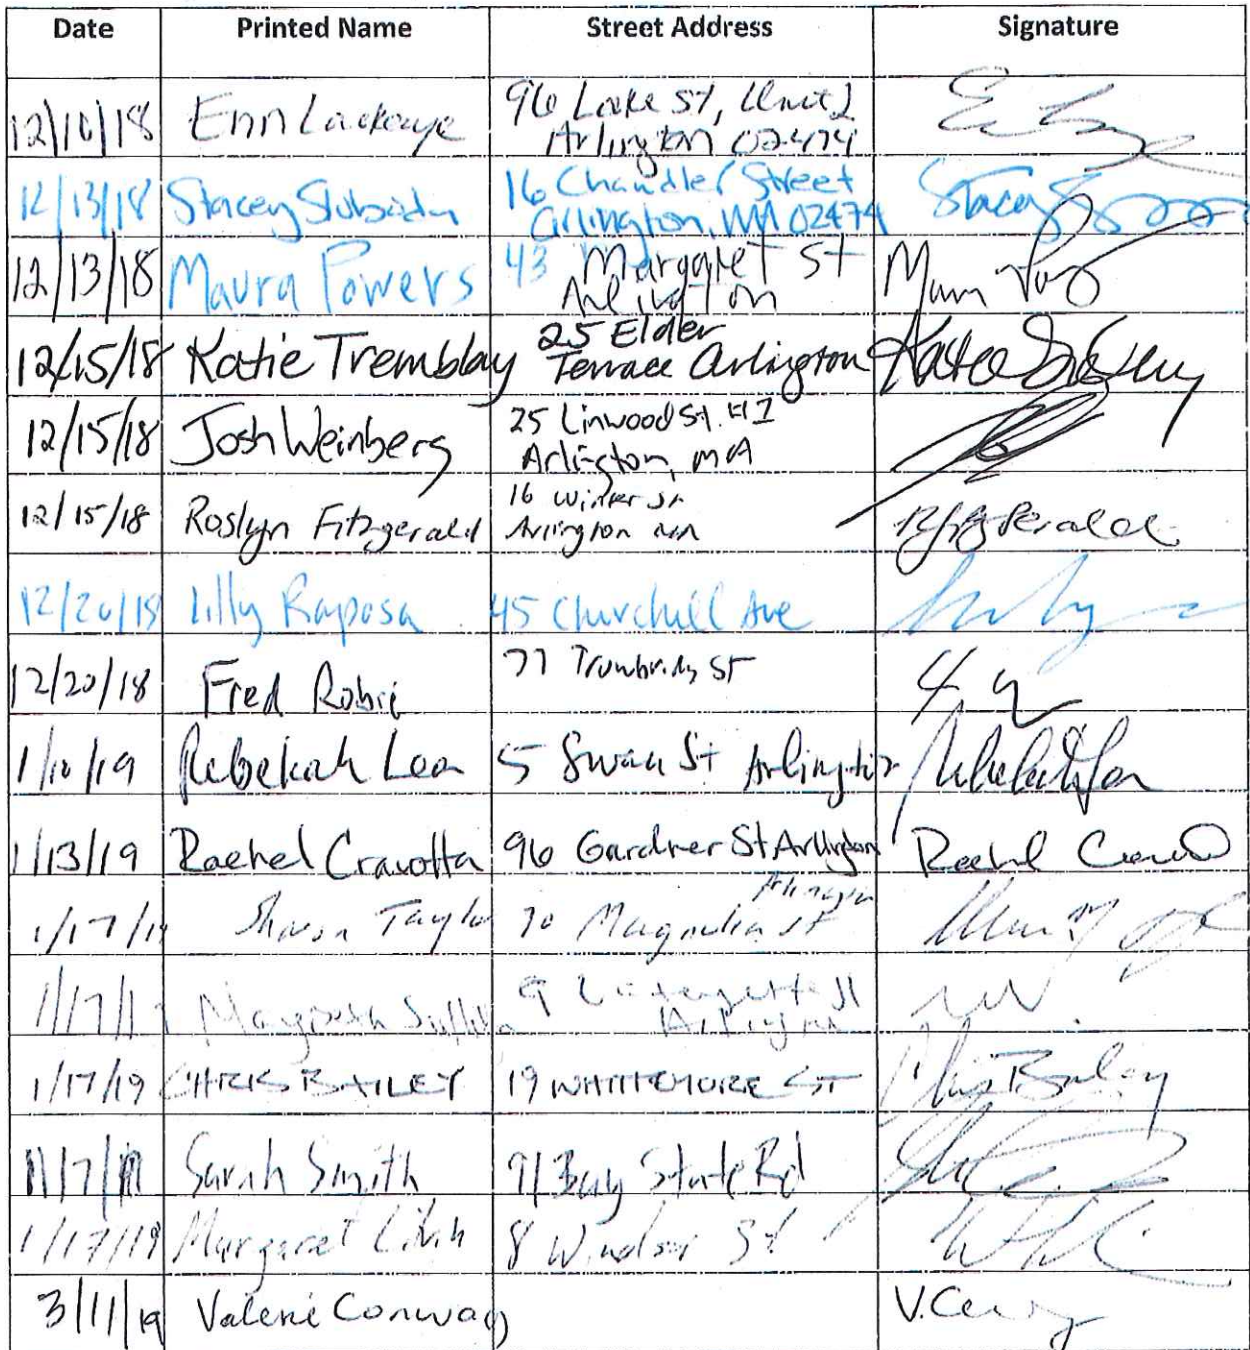 Date Printed Name Street Address Signature
12/10/18 Erin Lackaye 96 Lake St, Unit 2
Arlington 02474
12/13/18 Stacey 16 Chandler Street Stacey
Arlington, MA 02474
12/13/18 Maura Powers 43 Margaret St
Arlington
12/15/18 Katie Tremblay 25 Elder
Terrace Arlington
12/15/18 Josh Weinberg 25 Linwood St. #1
Arlington, MA
12/15/18 Roslyn Fitzgerald 16 Winter St
Arlington MA
12/20/18 Lilly Raposa 45 Churchill Ave
12/20/18 Fred 77 St
1/10/19 Rebekah Lea 5 Swan St Arlington
1/13/19 Rachel Cravotta 96 Gardner St Arlington Rachel
Arlington
1/17/19 Sharon Taylor 70 Magnolia St
1/17/19 9 St
Arlington
1/17/19 CHRIS BAILEY 19 WHITTEMORE ST Chris Bailey
1/17/19 Sarah Smith 91 Bay State Rd
1/17/19 Margaret 8 Windsor St
3/11/19 Valerie Conway